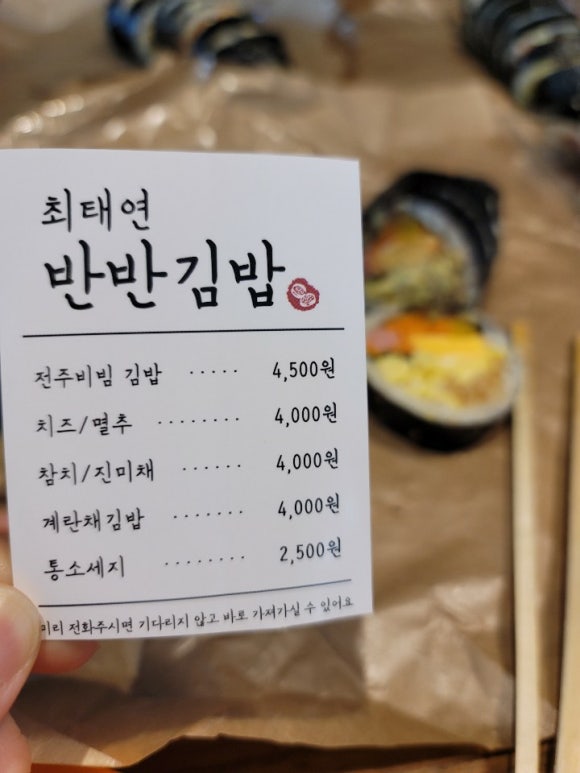 최태연
반반김밥
전주비빔 김밥 ····· 4,500원
치즈/멸추 ········ 4,000원
참치/진미채 ······ 4,000원
계란채김밥 ······· 4,000원
통소세지 ········ 2,500원
미리 전화주시면 기다리지 않고 바로 가져가실 수 있어요